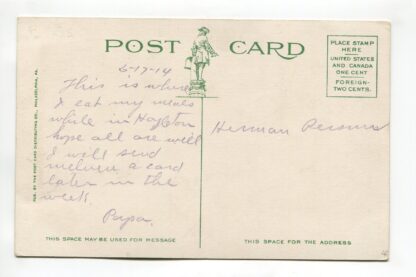 POST CARD
PLACE STAMP
HERE
UNITED STATES
AND CANADA
ONE CENT
FOREIGN-
TWO CENTS.
PUB. BY THE POST CARD DISTRIBUTING CO., PHILADELPHIA, PA.
6-17-14
This is where
I eat my meals
while in Hazleton
hope all are well
I will send
a card
later in the
week.
Papa.
Herman
THIS SPACE MAY BE USED FOR MESSAGE
THIS SPACE FOR THE ADDRESS